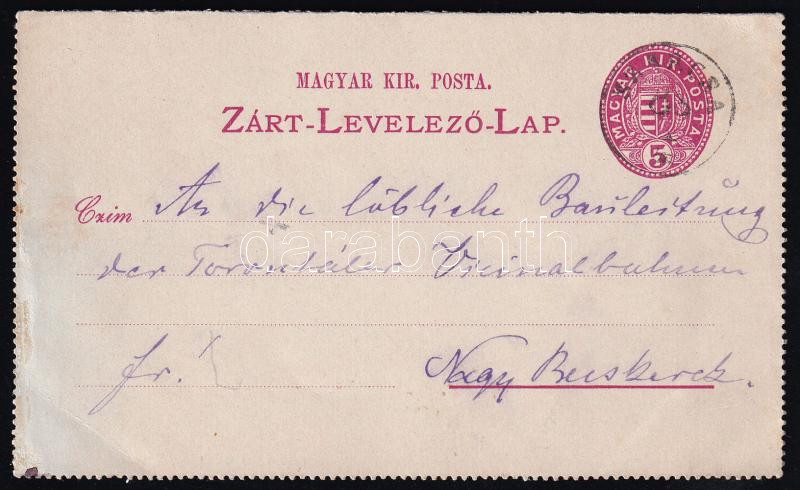 MAGYAR KIR. POSTA.
ZÁRT-LEVELEZŐ-LAP.
MAGYAR KIR. POSTA
5
Czim An die löbliche Bauleitung
der Torontáler Vicinalbahnen
fr.
Nagy Becskerek.
darabanth